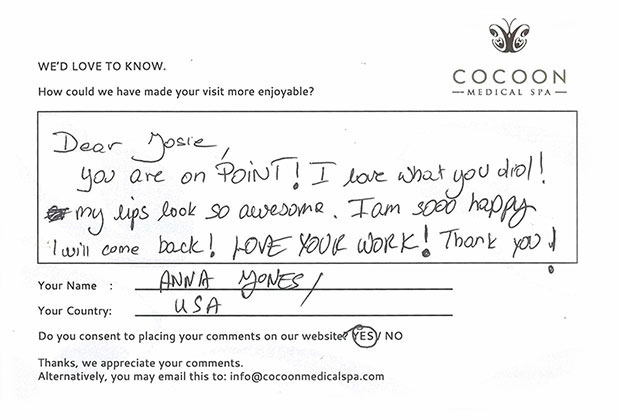 COCOON
MEDICAL SPA
WE'D LOVE TO KNOW.
How could we have made your visit more enjoyable?
Dear Josie,
you are on POINT! I love what you did!
my lips look so awesome. I am sooo happy
I will come back! LOVE YOUR WORK! Thank you!
Your Name : ANNA JONES
Your Country: USA
Do you consent to placing your comments on our website? YES / NO
Thanks, we appreciate your comments.
Alternatively, you may email this to: info@cocoonmedicalspa.com